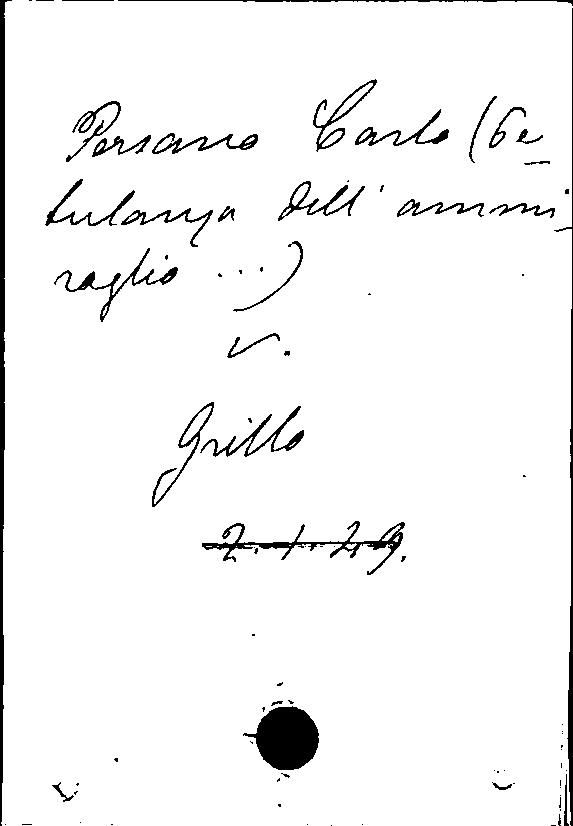 Persano Carlo (Pe
tulanza dell' ammi_
raglio ...)
v.
Grillo
2.1.29.